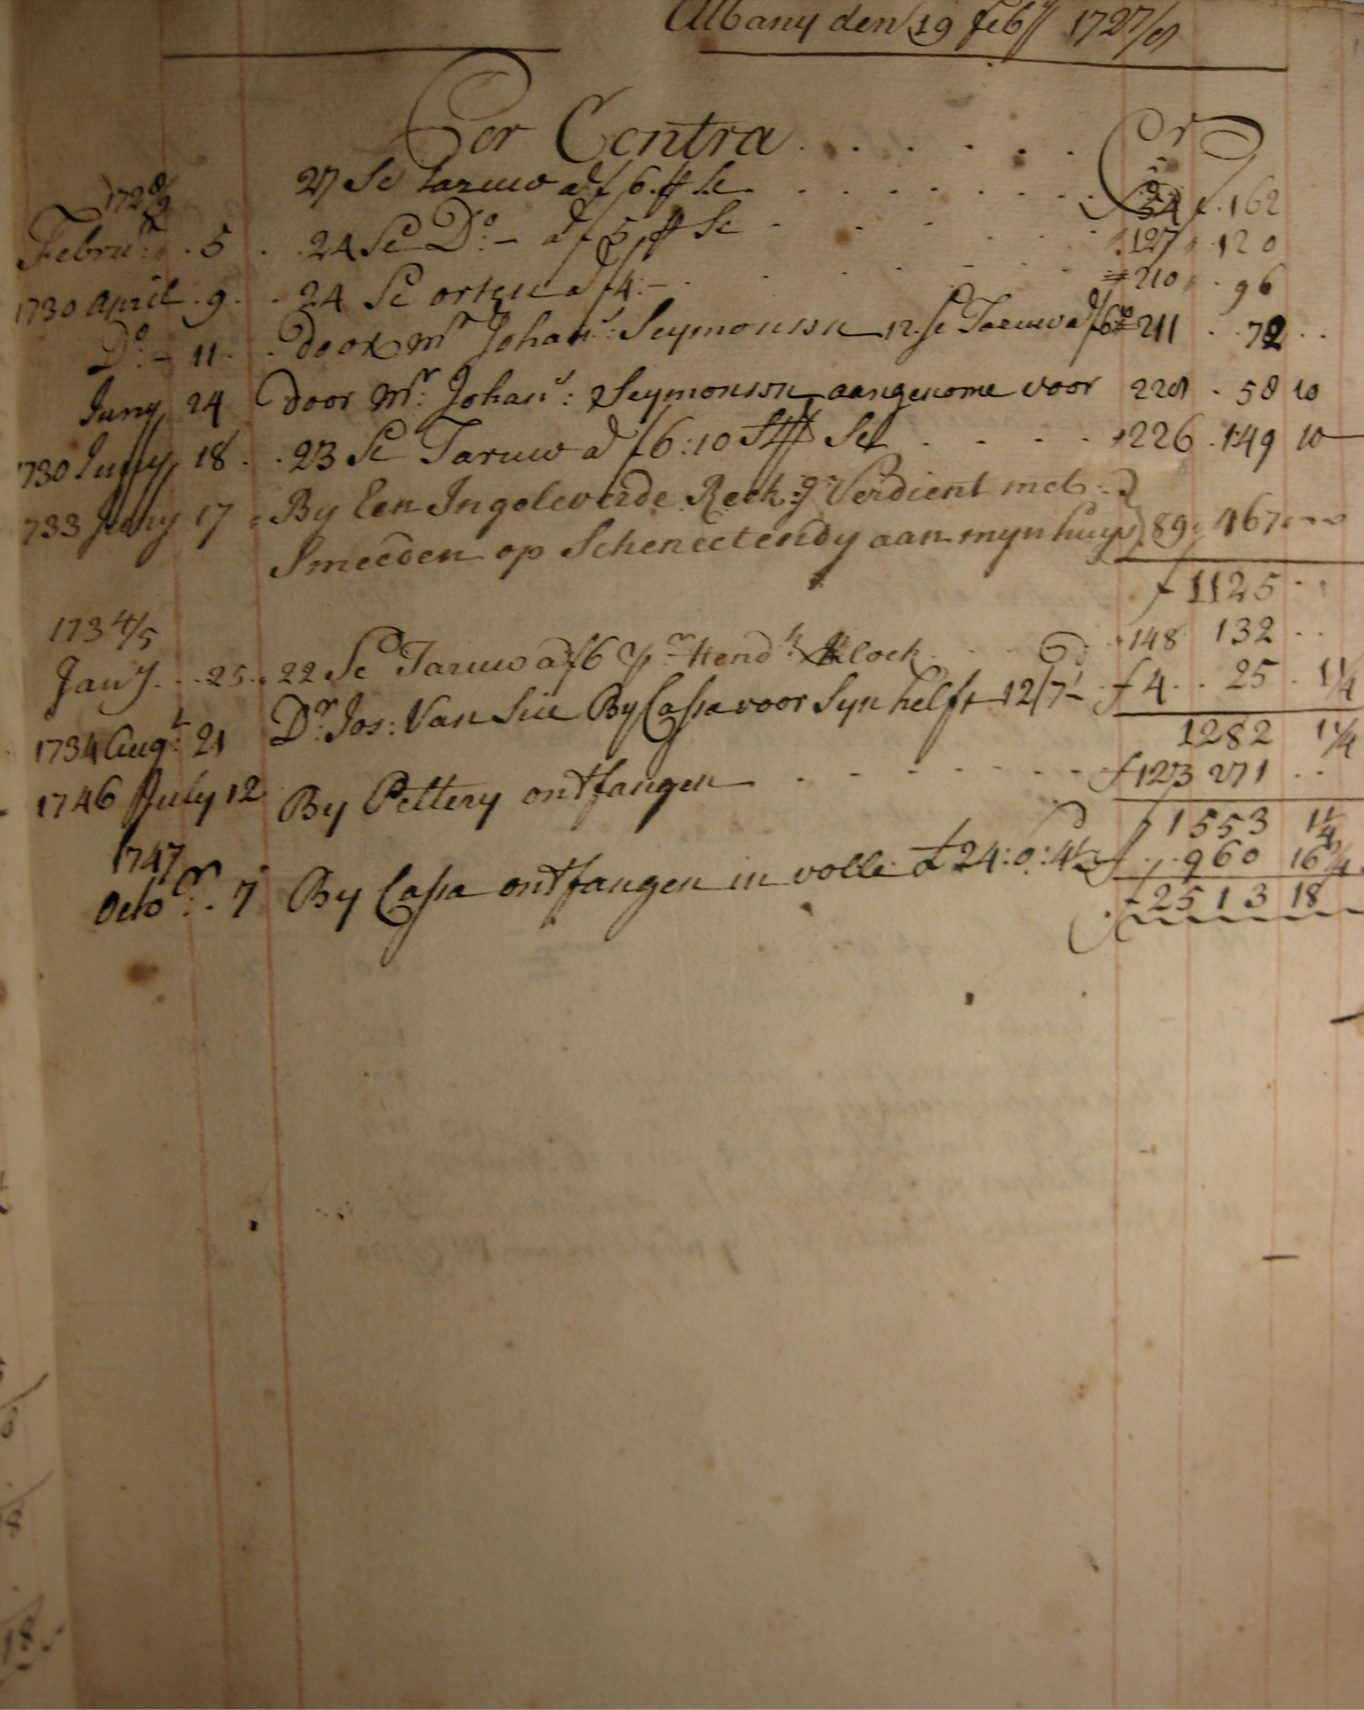 Albany den 19 feby 1727/8
Per Contra . . . . . . Cr
1728/9 27 Sc Taruw a f6 ⅌ Sc . . . . . . . 54 f 162
Febru. 5 . 24 Sc Do:- a f5 ⅌ Sc . . . . . 127 . 120
1730 April . 9 . . 24 Sc erten a f4:- . . . . . 210 . 96
Do:- 11 . . door Mr Johans: Seymonssn 12 Sc Taruw a f6 211 . 72 . .
Juny 24 door Mr: Johans: Seymonssn aangenome voor 228 . 58 10
1730 July 18 . . 23 Sc Taruw a f6:10 St ⅌ Sc . . . . 226 . 149 10
1733 17 By Een Ingeleverde Reek:g Verdient met
Smeeden op Schenectendy aan myn huys 89 467
f 1125
1734/5
Jany . . 25 . 22 Sc Taruw a f6 pr Hendk: Klock . . . 148 132 . .
1734 Augt: 21 Dr. Jos: Van Sice By Cassa voor Syn helft 12/7½ f 4 . . 25 . 1¼
1282 1¼
1746 July 12 By Peltery ontfangen . . . . . . f 123 271 . .
f 1553 1¼
1747
Octobr. 7 By Cassa ontfangen in volle £24:0:4½ f . 960 16¾
f 2513 18
18